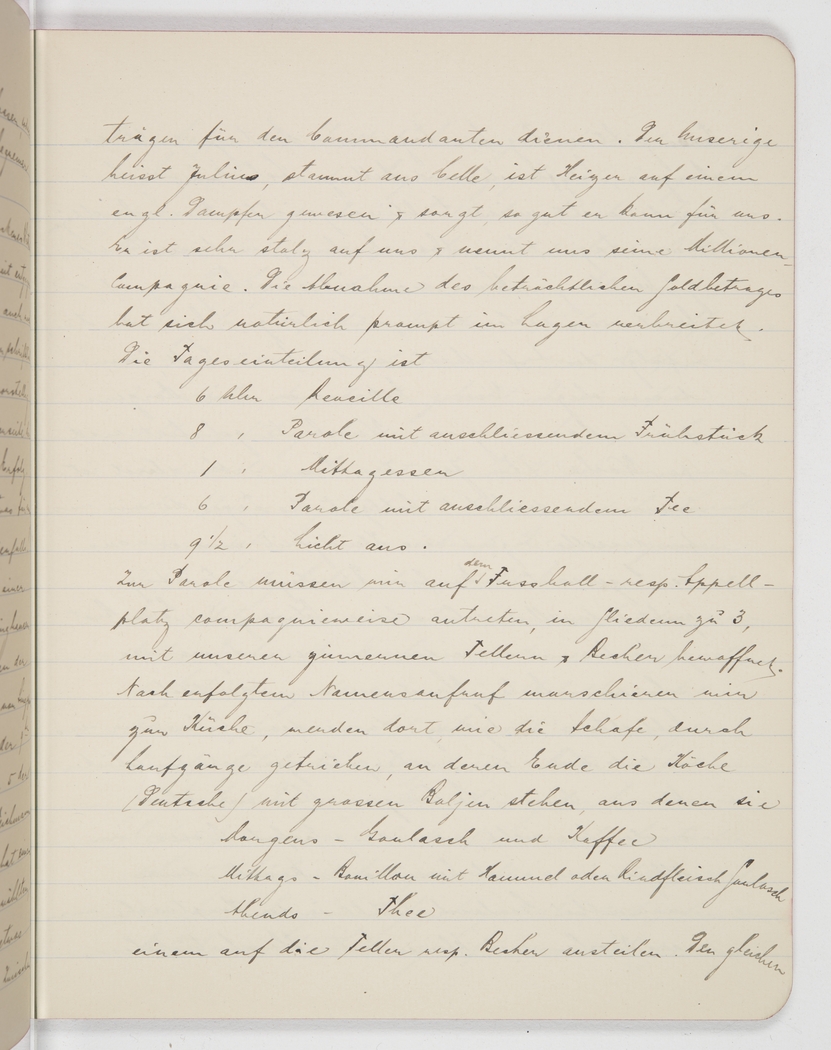 trägen für den Commandanten dienen. Der Unserige
heisst Julius, stammt aus Celle, ist Heizer auf einem
engl. Dampfer gewesen & sorgt, so gut er kann für uns.
Er ist sehr stolz auf uns & nennt uns seine Millionen-
Compagnie. Die Abnahme des beträchtlichen Goldbetrages
hat sich natürlich prompt im Lager verbreitet.
Die Tageseinteilung ist
6 Uhr Reveille
8 " Parole mit anschliessendem Frühstück
1 " Mittagessen
6 " Parole mit anschliessendem Tee
9 1/2 " Licht aus.
Zur Parole müssen wir auf dem Fussball- resp. Appell-
platz compagnieweise antreten, in Gliedern zu 3,
mit unseren zinnernen Tellern & Bechern bewaffnet.
Nach erfolgtem Namensaufruf marschieren wir
zur Küche, werden dort, wie die Schafe, durch
Laufgänge getrieben, an deren Ende die Köche
(Deutsche) mit grossen Baljen stehen, aus denen sie
Morgens - Goulasch und Kaffee
Mittags - Bouillon mit Hammel oder Rindfleisch Goulasch
Abends - Thee
einem auf die Teller resp. Becher austeilen. Den gleichen